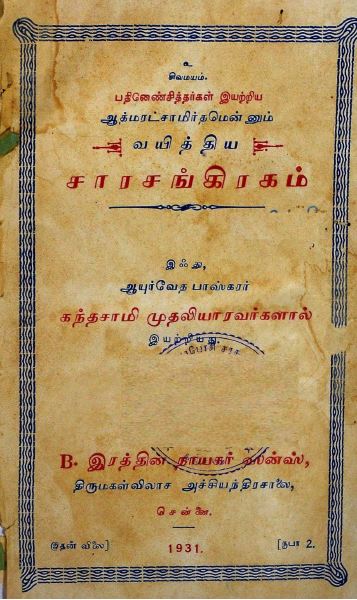 உ
சிவமயம்.
பதினெண்சித்தர்கள் இயற்றிய
ஆத்மரட்சாமிர்தமென்னும்
வயித்திய
சாரசங்கிரகம்
இஃது,
ஆயுர்வேத பாஸ்கரர்
கந்தசாமி முதலியாரவர்களால்
இயற்றியது.
B. இரத்தின நாயகர் ஸன்ஸ்,
திருமகள்விலாச அச்சியந்திரசாலை,
சென்னை.
இதன் விலை] 1931. [ரூபா 2.